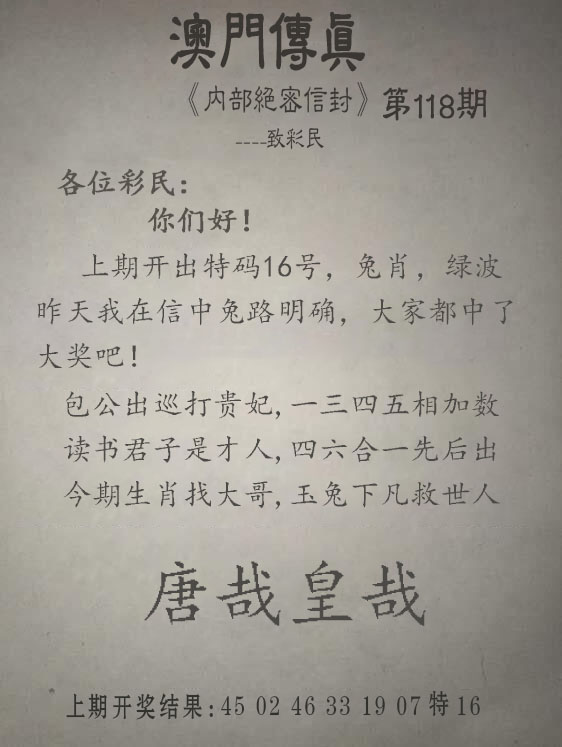 澳門傳眞
《内部絕密信封》第118期
----致彩民
各位彩民：
你们好！
上期开出特码16号，兔肖，绿波
昨天我在信中兔路明确，大家都中了
大奖吧！
包公出巡打贵妃,一三四五相加数
读书君子是才人,四六合一先后出
今期生肖找大哥,玉兔下凡救世人
唐哉皇哉
上期开奖结果:45 02 46 33 19 07 特 16